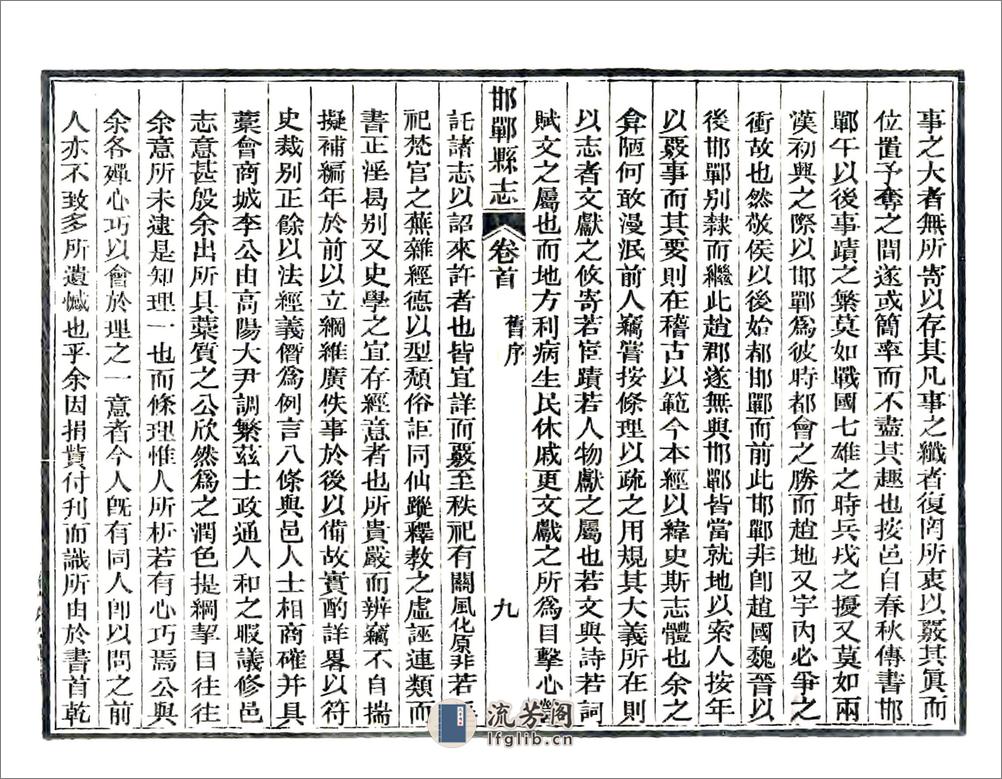 事之大者無所寄以存其凡事之纖者復罔所衷以覈其眞而
位置予奪之間遂或簡率而不盡其趣也按邑自春秋傳書邯
鄲午以後事蹟之繁莫如戰國七雄之時兵戎之擾又莫如兩
漢初興之際以邯鄲爲彼時都會之勝而趙地又宇內必爭之
衝故也然敬侯以後始都邯鄲而前此邯鄲非卽趙國魏晉以
後邯鄲別隸而繼此趙郡遂無與邯鄲皆當就地以索人按年
以覈事而其要則在稽古以範今本經以緯史斯志體也余之
弇陋何敢漫泯前人竊嘗按條理以疏之用規其大義所在則
以志者文獻之攸寄若宦蹟若人物獻之屬也若文與詩若詞
賦文之屬也而地方利病生民休戚更文獻之所爲目擊心
邯鄲縣志 卷首 舊序 九
託諸志以詔來許者也皆宜詳而覈至秩祀有關風化原非若
祀梵官之蕪雜經德以型頹俗詎同仙蹤釋敎之虛誣連類而
書正淫曷別又史學之宜存經意者也所貴嚴而辨竊不自揣
擬補編年於前以立綱維廣佚事於後以備故實酌詳畧以符
史裁別正餘以法經義僭爲例言八條與邑人士相商確并具
藁會商城李公由高陽大尹調繁茲土政通人和之暇議修邑
志意甚殷余出所具藁質之公欣然爲之潤色提綱挈目往往
余意所未逮是知理一也而條理惟人所析若有心巧焉公與
余各殫心巧以會於理之一意者今人旣有同人卽以問之前
人亦不致多所遺憾也乎余因捐貲付刊而識所由於書首乾
流芳閣
lfglib.cn